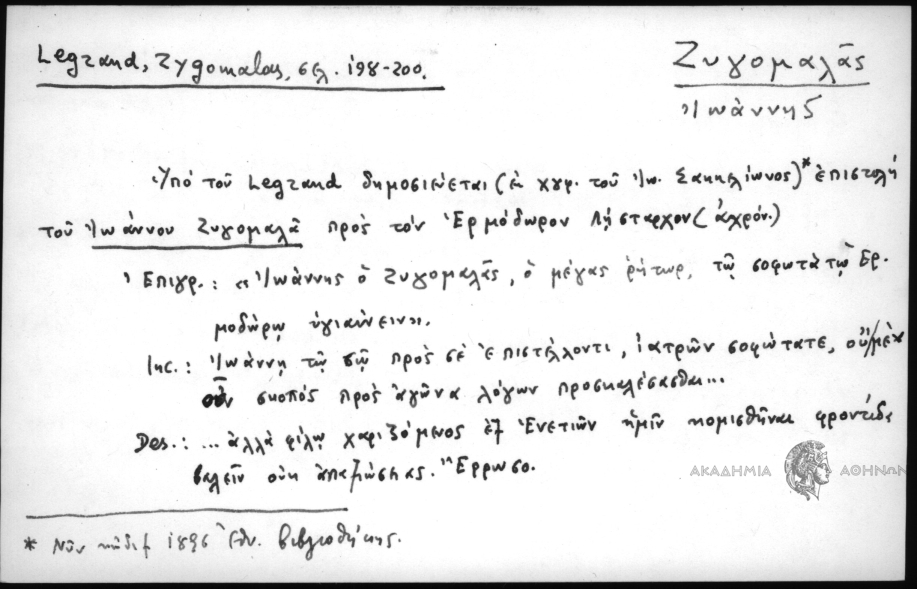 Legrand, Zygomalas, σελ. 198-200.
Ζυγομαλᾶς
Ἰωάννης
Ὑπό τοῦ Legrand δημοσιεύεται (ἐκ χγρ. τοῦ Ἰω. Σακκελίωνος)* ἐπιστολή
τοῦ Ἰωάννου Ζυγομαλᾶ πρὸς τὸν Ἑρμόδωρον Λήσταρχον (ἀχρόν.)
Ἐπιγρ.: «Ἰωάννης ὁ Ζυγομαλᾶς, ὁ μέγας ῥήτωρ, τῷ σοφωτάτῳ Ἑρ-
μοδώρῳ ὑγιαίνειν».
Inc.: Ἰωάννῃ τῷ σῷ πρὸς σὲ ἐπιστέλλοντι, ἰατρῶν σοφώτατε, οὐ μὲν
οὖν σκοπός πρὸς ἀγῶνα λόγων προσκαλέσασθαι...
Des.: ... ἀλλὰ φίλῳ χαριζόμενος ἐξ Ἐνετιῶν ἡμῖν κομισθῆναι φροντίδα
βαλεῖν οὐκ ἀπαξιώσῃς. Ἔρρωσο.
ΑΚΑΔΗΜΙΑ ΑΘΗΝΩΝ
* Νῦν κῶδιξ 1896 Ἐθν. Βιβλιοθήκης.